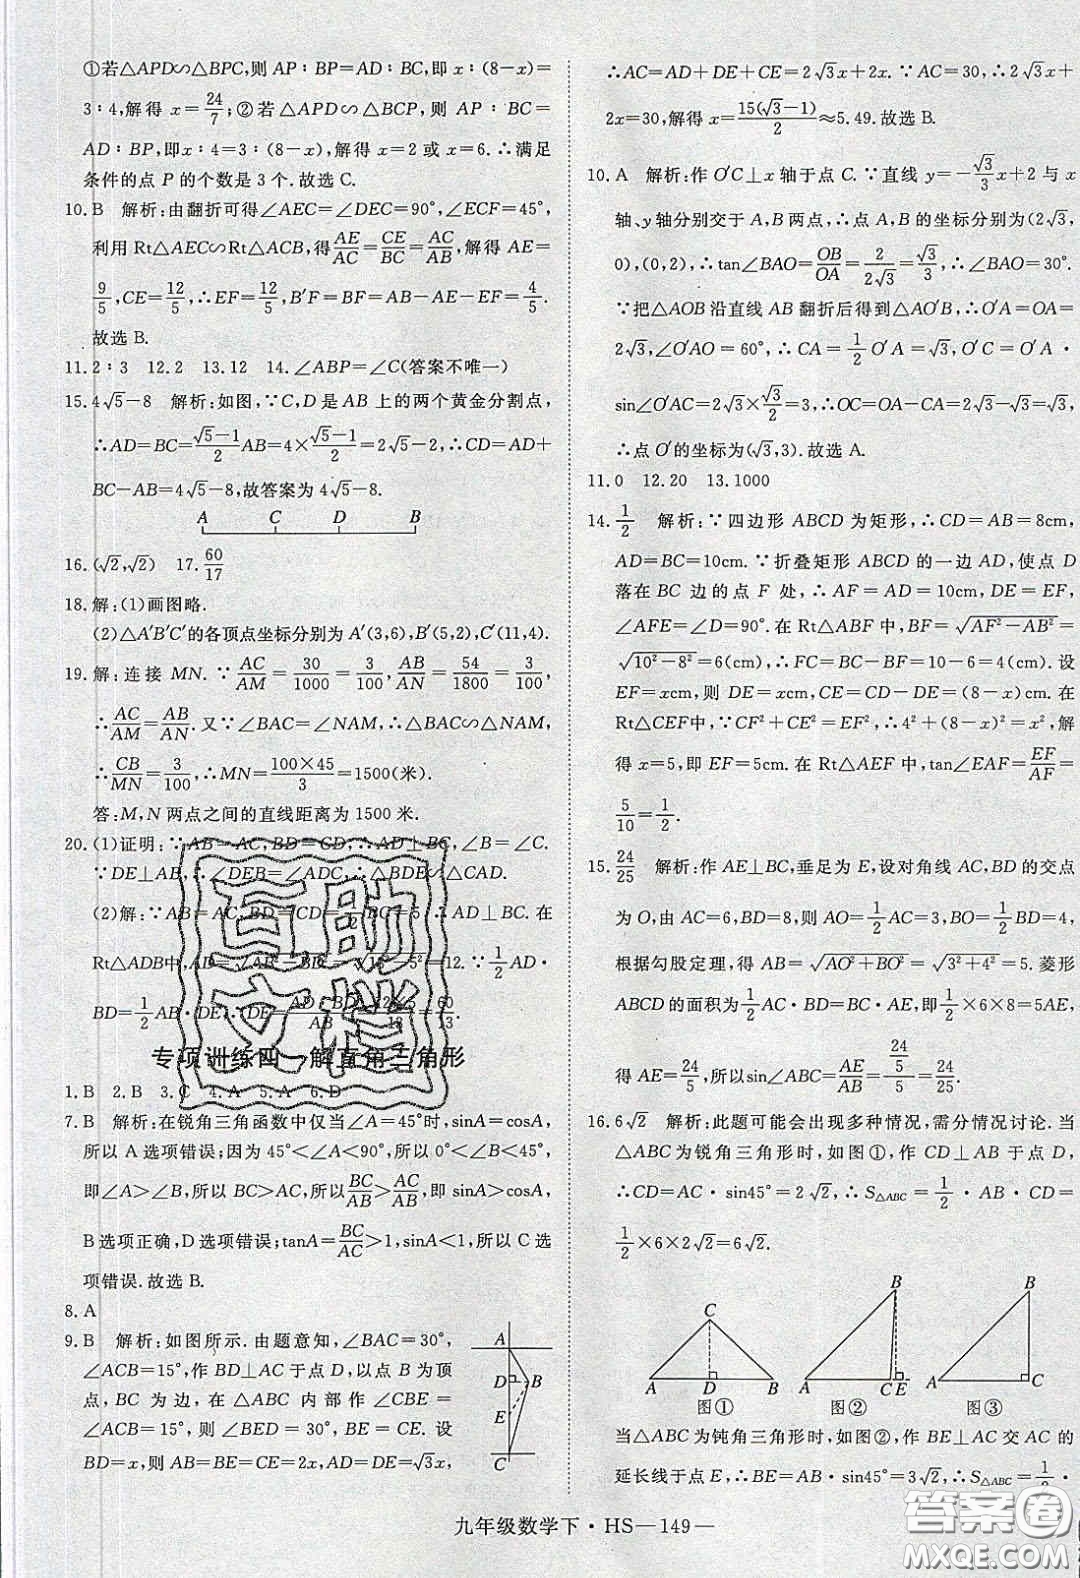 ①若△APD∽△BPC,则 AP∶BP=AD∶BC,即 x∶(8-x)=
3∶4,解得 x=24/7;②若△APD∽△BCP,则 AP∶BC=
AD∶BP,即x∶4=3∶(8-x),解得 x=2 或 x=6.∴满足
条件的点 P 的个数是 3 个.故选 C.
10.B 解析:由翻折可得∠AEC=∠DEC=90°,∠ECF=45°,
利用 Rt△AEC∽Rt△ACB,得AE/AC=CE/BC=AC/AB.解得 AE=
9/5,CE=12/5,∴EF=12/5,B′F=BF=AB-AE-EF=4/5.
故选 B.
11.2∶3 12.2 13.12 14.∠ABP=∠C(答案不唯一)
15.4√5-8 解析:如图,∵C,D 是 AB 上的两个黄金分割点,
∴AD=BC=(√5-1)/2 AB=4×(√5-1)/2=2√5-2,∴CD=AD+
BC-AB=4√5-8,故答案为 4√5-8.
A C D B
16.(√2,√2) 17.60/17
18.解:(1)画图略.
(2)△A′B′C′的各顶点坐标分别为 A′(3,6),B′(5,2),C′(11,4).
19.解:连接 MN.∵AC/AM=30/1000=3/100,AB/AN=54/1800=3/100,
∴AC/AM=AB/AN.又∵∠BAC=∠NAM,∴△BAC∽△NAM,
∴CB/MN=3/100,∴MN=(100×45)/3=1500(米).
答:M,N 两点之间的直线距离为 1500 米.
20.(1)证明:∵AB=AC,BD=CD,∴AD⊥BC,∠B=∠C.
∵DE⊥AB,∴∠DEB=∠ADC,∴△BDE∽△CAD.
(2)解:∵AB=AC,BD=CD=1/2BC=5,∴AD⊥BC.在
Rt△ADB中,AD= =12.∵1/2AD·
BD=1/2AB·DE,∴DE=AD·BD/AB=12×5/13=60/13.
专项训练四 解直角三角形
1.B 2.B 3.C 4.A 5.A 6.D
7.B 解析:在锐角三角函数中仅当∠A=45°时,sinA=cosA,
所以 A 选项错误;因为 45°<∠A<90°,所以 0°<∠B<45°,
即∠A>∠B,所以 BC>AC,所以BC/AB>AC/AB,即 sinA>cosA,
B 选项正确,D 选项错误;tanA=BC/AC>1,sinA<1,所以 C 选
项错误.故选 B.
8.A
9.B 解析:如图所示.由题意知,∠BAC=30°,
∠ACB=15°,作 BD⊥AC 于点 D,以点 B 为顶
点,BC 为边,在△ABC 内部作∠CBE=
∠ACB=15°,则∠BED=30°,BE=CE.设
BD=x,则 AB=BE=CE=2x,AD=DE=√3x,
A
D B
E
C
∴AC=AD+DE+CE=2√3x+2x.∵AC=30,∴2√3x+
2x=30,解得 x=15(√3-1)/2≈5.49.故选 B.
10.A 解析:作 O′C⊥x 轴于点 C.∵直线 y=-√3/3x+2 与 x
轴、y轴分别交于 A,B 两点,∴点 A,B 的坐标分别为(2√3,
0),(0,2),∴tan∠BAO=OB/OA=2/2√3=√3/3,∴∠BAO=30°.
∵把△AOB 沿直线 AB 翻折后得到△AO′B,∴O′A=OA=
2√3,∠O′AO=60°,∴CA=1/2O′A=√3,O′C=O′A·
sin∠O′AC=2√3×√3/2=3,∴OC=OA-CA=2√3-√3=√3,
∴点 O′的坐标为(√3,3).故选 A.
11.0 12.20 13.1000
14.1/2 解析:∵四边形 ABCD 为矩形,∴CD=AB=8cm,
AD=BC=10cm.∵折叠矩形 ABCD 的一边 AD,使点 D
落在 BC 边的点 F 处,∴AF=AD=10cm,DE=EF,
∠AFE=∠D=90°.在 Rt△ABF 中,BF=√(AF²-AB²)=
√(10²-8²)=6(cm),∴FC=BC-BF=10-6=4(cm).设
EF=xcm,则 DE=xcm,CE=CD-DE=(8-x)cm.在
Rt△CEF中,∵CF²+CE²=EF²,∴4²+(8-x)²=x²,解
得 x=5,即 EF=5cm.在 Rt△AEF 中,tan∠EAF=EF/AF=
5/10=1/2.
15.24/25 解析:作 AE⊥BC,垂足为 E,设对角线 AC,BD 的交点
为 O,由 AC=6,BD=8,则 AO=1/2AC=3,BO=1/2BD=4,
根据勾股定理,得 AB=√(AO²+BO²)=√(3²+4²)=5.菱形
ABCD 的面积为1/2AC·BD=BC·AE,即1/2×6×8=5AE,
得 AE=24/5,所以sin∠ABC=AE/AB=(24/5)/5=24/25.
16.6√2 解析:此题可能会出现多种情况,需分情况讨论.当
△ABC为锐角三角形时,如图①,作 CD⊥AB 于点 D,
∴CD=AC·sin45°=2√2,∴S△ABC=1/2·AB·CD=
1/2×6×2√2=6√2.
C
A D B
图①
B
A C E
图②
B
A C
图③
当△ABC为钝角三角形时,如图②,作 BE⊥AC 交 AC 的
延长线于点 E,∴BE=AB·sin45°=3√2,∴S△ABC=1/2·
九年级数学下·HS—149—
互助
文档
答案圈
MXQE.COM